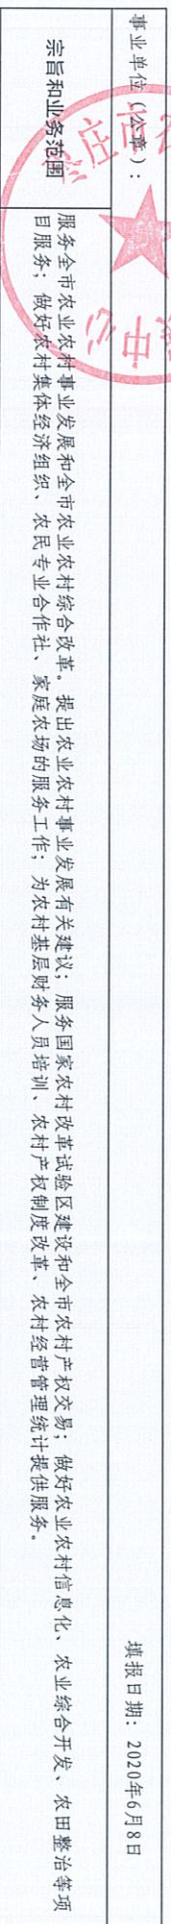 事业单位（公章）：
填报日期：2020年6月8日
宗旨和业务范围
服务全市农业农村事业发展和全市农业农村综合改革。提出农业农村事业发展有关建议；服务国家农村改革试验区建设和全市农村产权交易；做好农业农村信息化、农业综合开发、农田整治等项
目服务；做好农村集体经济组织、农民专业合作社、家庭农场的服务工作；为农村基层财务人员培训、农村产权制度改革、农村经营管理统计提供服务。